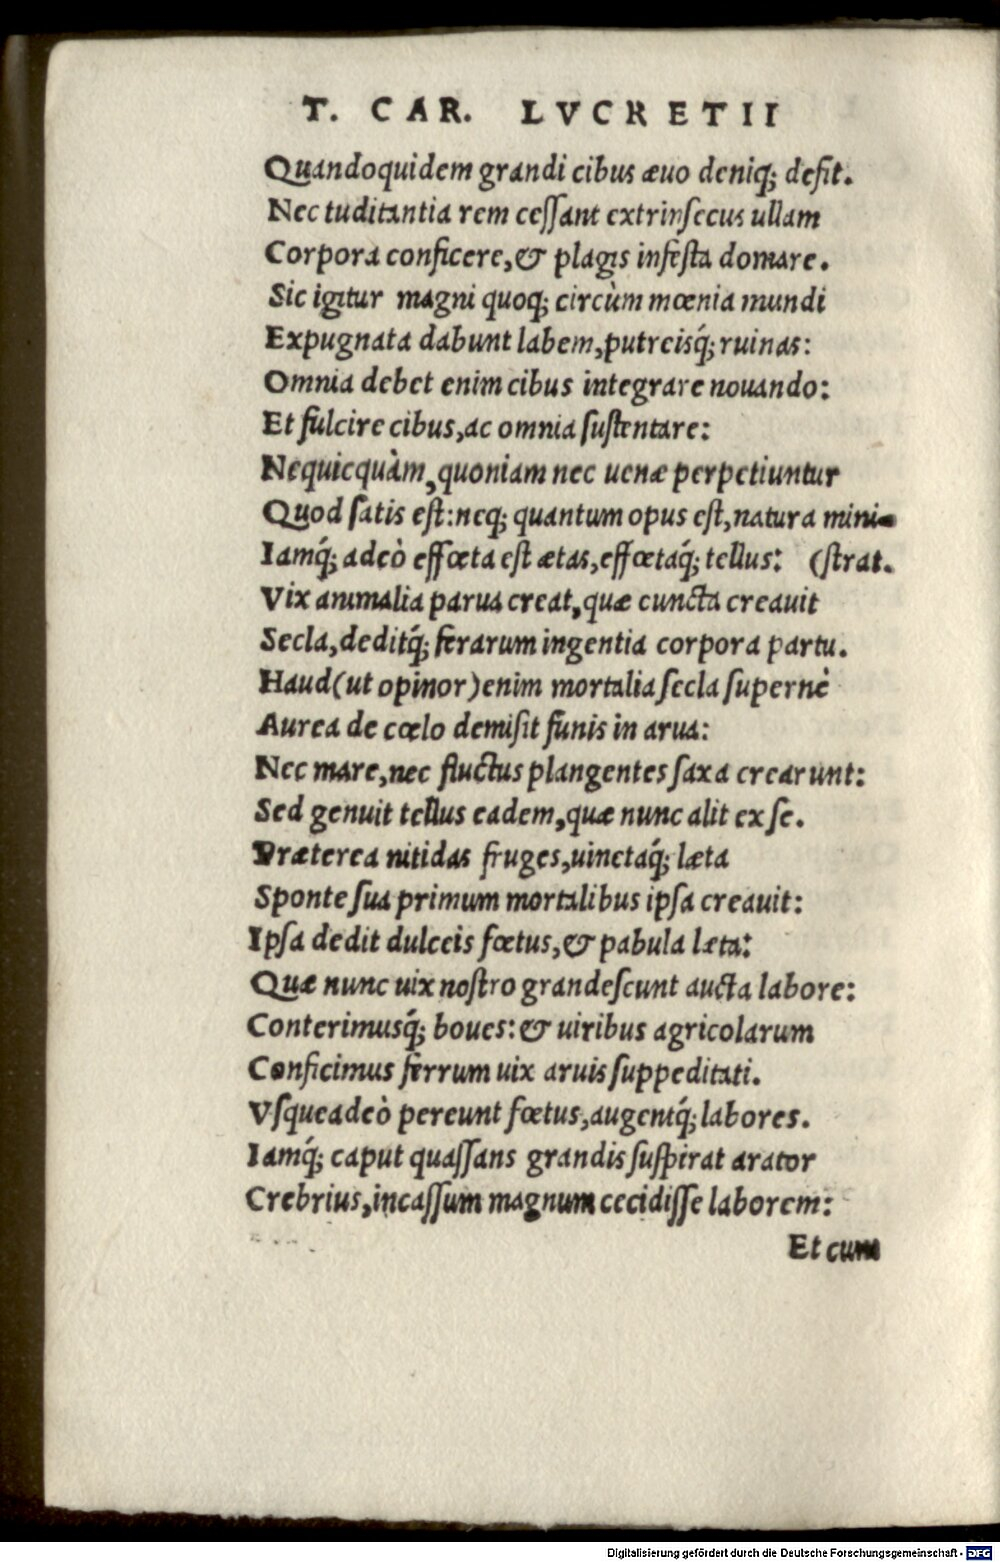 T. CAR. LVCRETII
Quandoquidem grandi cibus æuo deniq; defit.
Nec tuditantia rem ceſſant extrinſecus ullam
Corpora conficere, & plagis infeſta domare.
Sic igitur magni quoq; circùm mœnia mundi
Expugnata dabunt labem, putreisq́; ruinas:
Omnia debet enim cibus integrare nouando:
Et fulcire cibus, ac omnia ſuſtentare:
Nequicquàm, quoniam nec uenæ perpetiuntur
Quod ſatis eſt: neq; quantum opus eſt, natura mini-
Iamq́; adeò effœta eſt ætas, effœtaq́; tellus: (ſtrat.
Vix animalia parua creat, quæ cuncta creauit
Secla, deditq́; ferarum ingentia corpora partu.
Haud (ut opinor) enim mortalia ſecla ſupernè
Aurea de cœlo demiſit funis in arua:
Nec mare, nec fluctus plangentes ſaxa crearunt:
Sed genuit tellus eadem, quæ nunc alit ex ſe.
Præterea nitidas fruges, uinctaq́; læta
Sponte ſua primum mortalibus ipſa creauit:
Ipſa dedit dulceis fœtus, & pabula læta:
Quæ nunc uix noſtro grandeſcunt aucta labore:
Conterimusq́; boues: & uiribus agricolarum
Conficimus ferrum uix aruis ſuppeditati.
Vſqueadeò pereunt fœtus, augentq́; labores.
Iamq́; caput quaſſans grandis ſuſpirat arator
Crebrius, incaſſum magnum cecidiſſe laborem:
Et cum
Digitalisierung gefördert durch die Deutsche Forschungsgemeinschaft - DFG